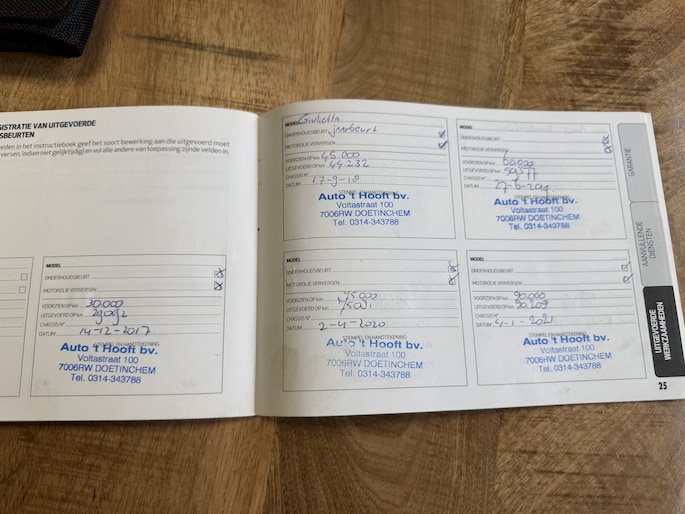 GISTRATIE VAN UITGEVOERDE
SBEURTEN
eden in het instructieboek geef het soort bewerking aan die uitgevoerd moet
versen, indien niet gelijktijdig) en vul alle andere van toepassing zijnde velden in.
MODEL
ONDERHOUDSBEURT
MOTOROLIE VERVERSEN
VOORZIEN OP km 30.000
UITGEVOERD OP km 29092
CHASSIS N°
DATUM 14-12-2017
STEMPEL EN HANDTEKENING
Auto 't Hooft bv.
Voltastraat 100
7006RW DOETINCHEM
Tel. 0314-343788
MODEL Giulietta
ONDERHOUDSBEURT jaarbeurt
MOTOROLIE VERVERSEN
VOORZIEN OP km 45.000
UITGEVOERD OP km 44.232
CHASSIS N°
DATUM 17-9-18
STEMPEL EN HANDTEKENING
Auto 't Hooft bv.
Voltastraat 100
7006RW DOETINCHEM
Tel. 0314-343788
MODEL
ONDERHOUDSBEURT
MOTOROLIE VERVERSEN
VOORZIEN OP km 60.000
UITGEVOERD OP km 59577
CHASSIS N°
DATUM 27-6-2019
Auto 't Hooft bv.
Voltastraat 100
7006RW DOETINCHEM
Tel. 0314-343788
MODEL
ONDERHOUDSBEURT
MOTOROLIE VERVERSEN
VOORZIEN OP km 75000
UITGEVOERD OP km 75001
CHASSIS N°
DATUM 2-4-2020
STEMPEL EN HANDTEKENING
Auto 't Hooft bv.
Voltastraat 100
7006RW DOETINCHEM
Tel. 0314-343788
MODEL
ONDERHOUDSBEURT
MOTOROLIE VERVERSEN
VOORZIEN OP km 90.000
UITGEVOERD OP km 90.209
CHASSIS N°
DATUM 4-1-2021
STEMPEL EN HANDTEKENING
Auto 't Hooft bv.
Voltastraat 100
7006RW DOETINCHEM
Tel. 0314-343788
GARANTIE
AANVULLENDE
DIENSTEN
UITGEVOERDE
WERKZAAMHEDEN
25